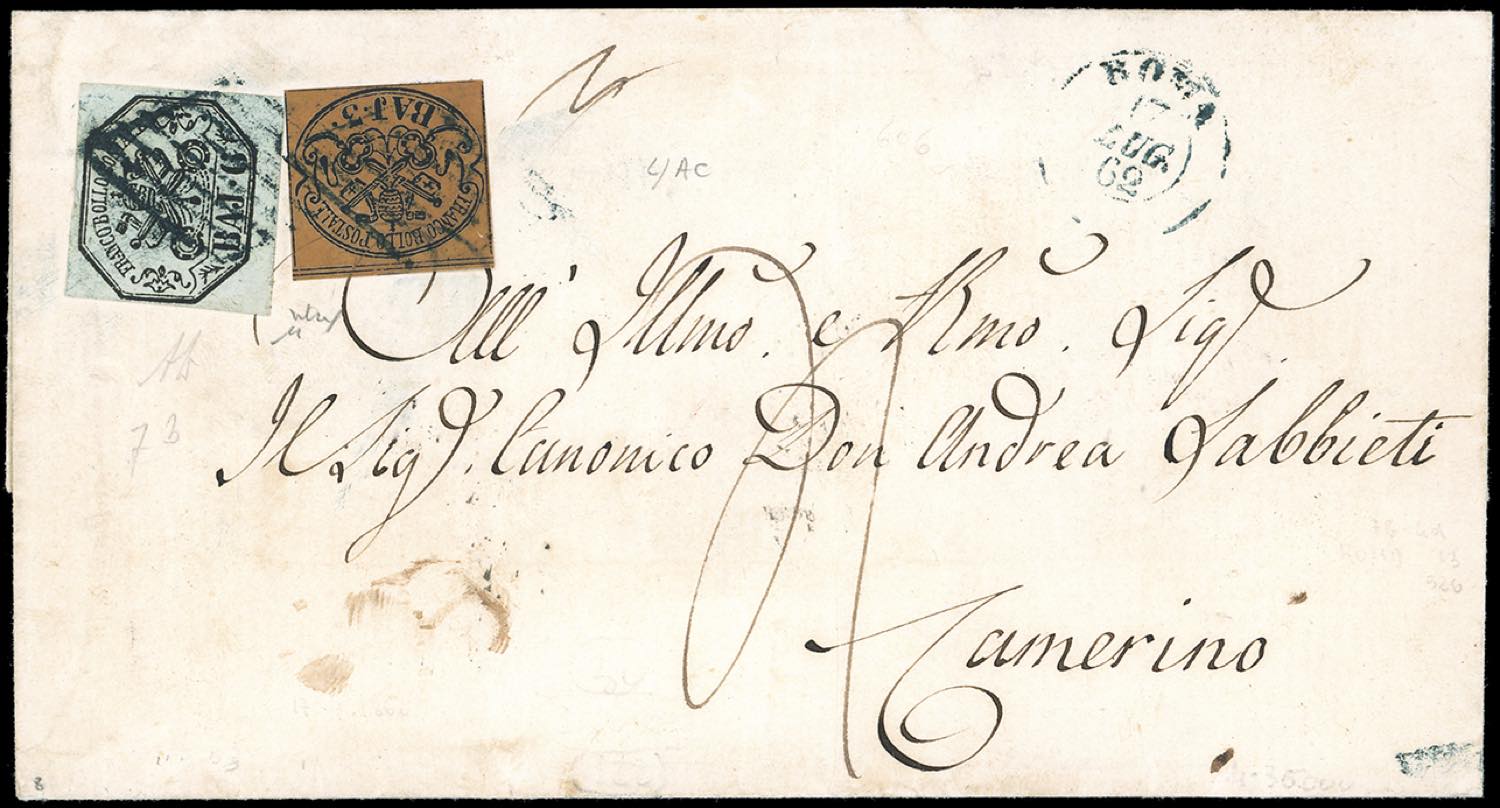 BAJ. 6
FRANCO BOLLO
BAJ. 3.
FRANCO BOLLO POSTALE
ROMA
17
LUG
62
606
4/AC
All' Illmo. e Rmo. Sigr
Il Sigr. Canonico Don Andrea Sabbieti
Camerino
7 B
8